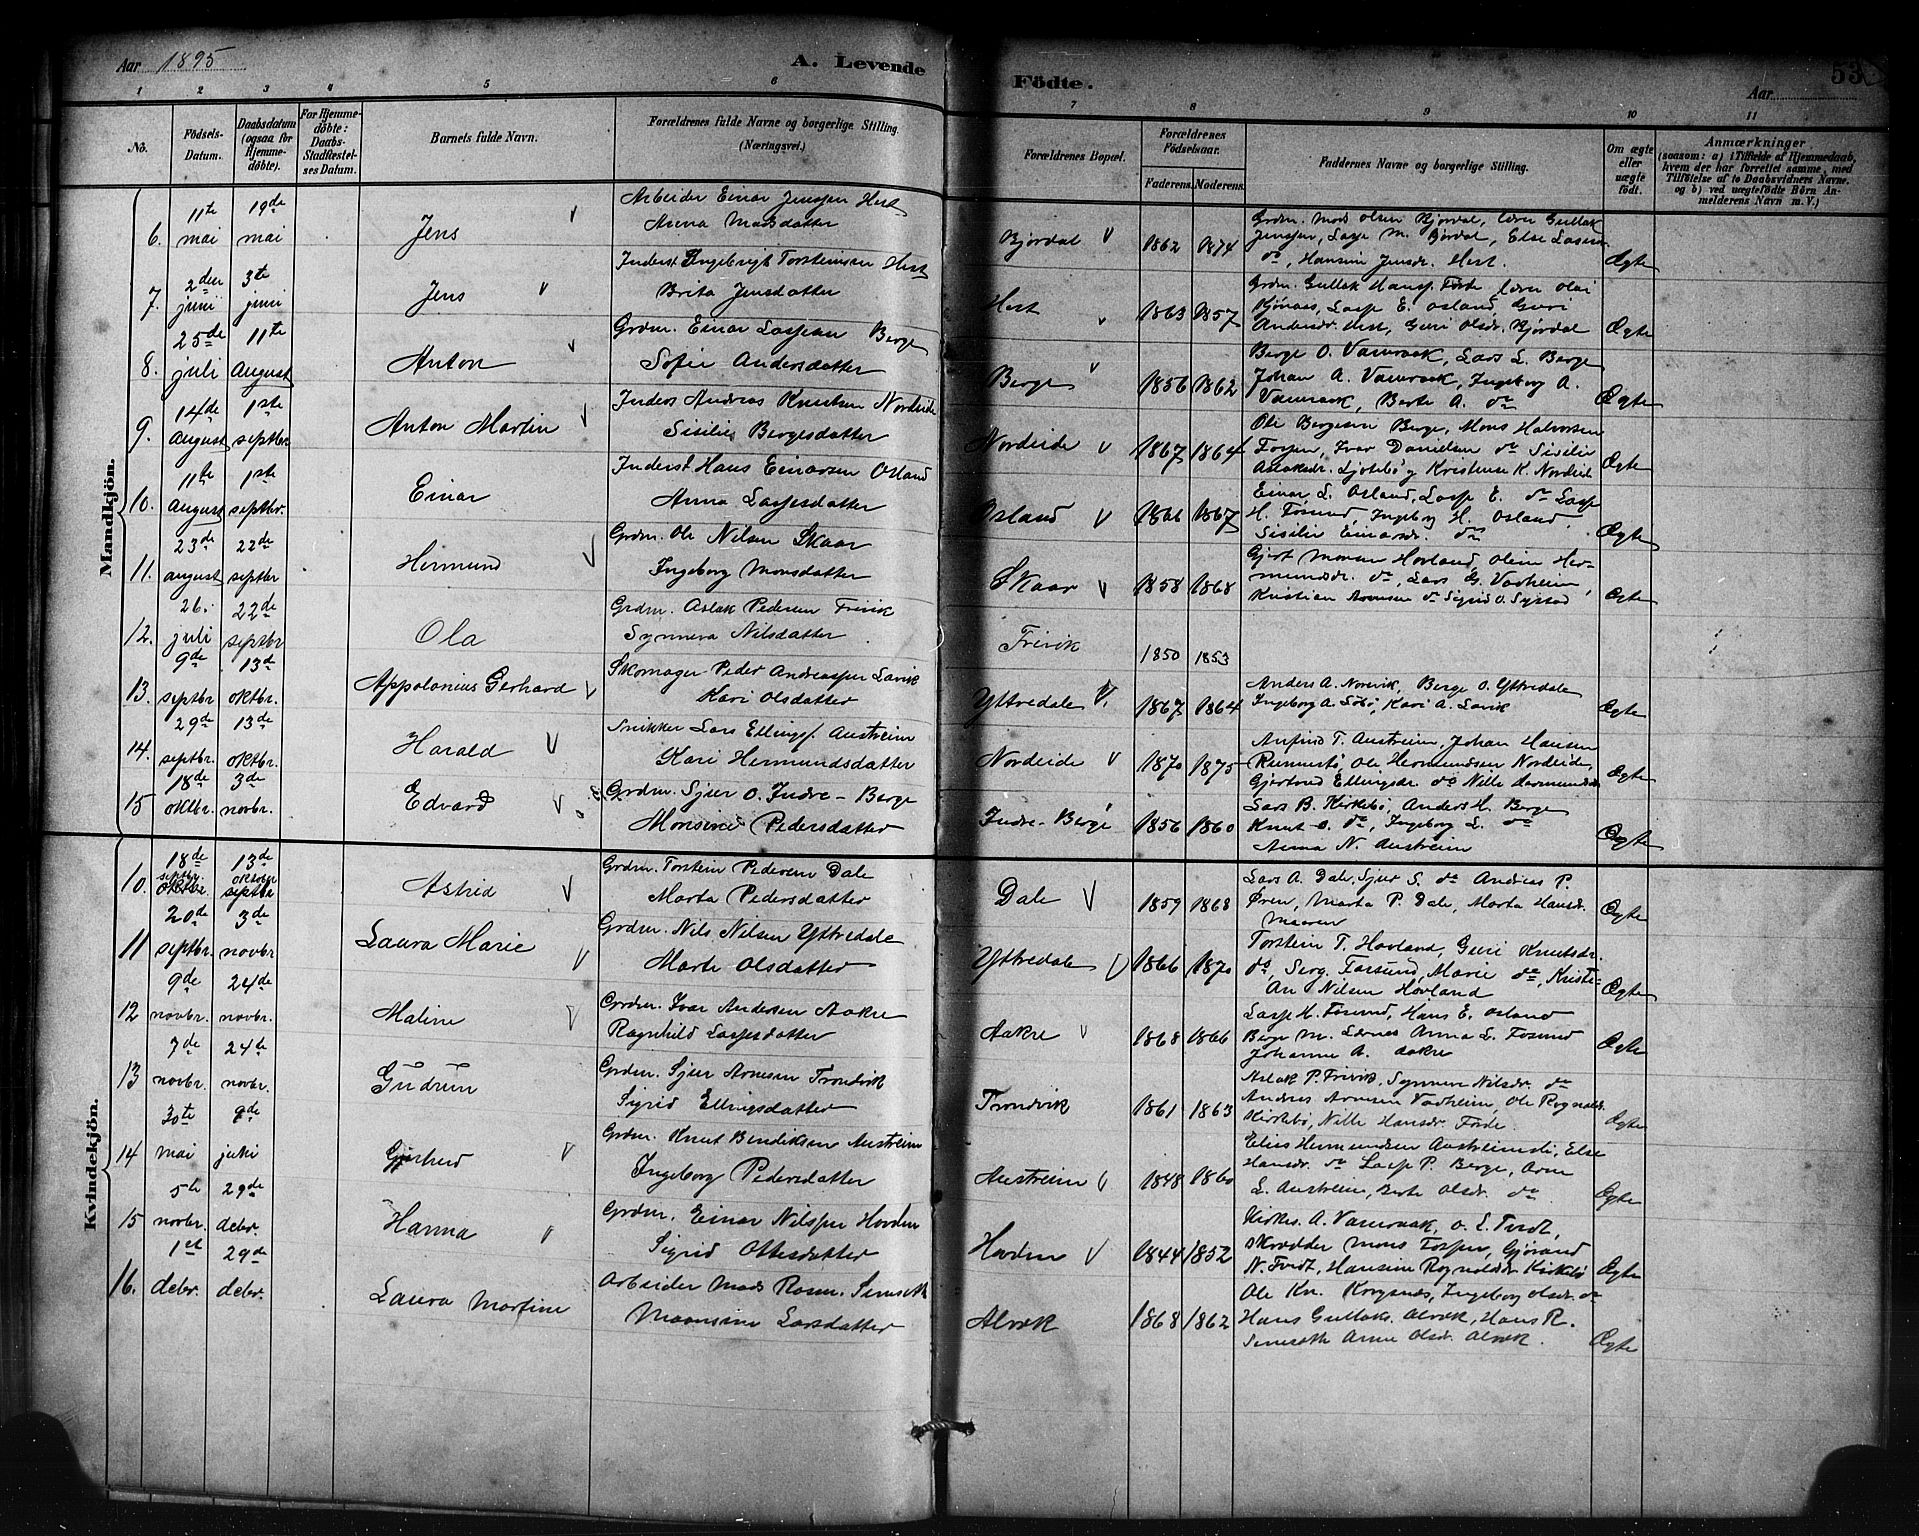 Aar 1895
A. Levende
Födte.
Aar
53
1 2 3 4 5 6 7 8 9 10 11
No.
Födsels-Datum.
Daabsdatum (ogsaa for Hjemmedöbte).
For Hjemmedöbte: Daabs-Stadfæstelses Datum.
Barnets fulde Navn.
Forældrenes fulde Navne og borgerlige Stilling. (Næringsvei.)
Forældrenes Bopæl.
Forældrenes Födselsaar.
Faderens. Moderens.
Faddernes Navne og borgerlige Stilling.
Om ægte eller uægte födt.
Anmærkninger
(saasom: a) i Tilfælde af Hjemmedaab, hvem der har forrettet samme, med Tilföielse af to Daabsvidners Navne. og b) ved uægtefödte Börn Anmelderens Navn m. V.)
Mandkjön.
6. 11te mai 19de mai Jens
Arbeider Einar Jensen Hest
Anna Madsdatter
Bjordal 1862 1874
Grdm. Mads Olsen Bjordal,
Hansine Jensdr. Hest. Ægte
7. 2den juni 3te juni Jens
Inderst Ingebrigt Torsteinsen Hest
Brita Jensdatter
Hest 1863 1857
Lasse E. Osland, Guri
Andersdr. Hest, Guri Olsdr. Bjordal Ægte
8. 25de juli 11te August Anton
Grdm. Einar Lassesen Berge
Sofie Andersdatter
Berge 1856 1862
Berge O. Vamraak, Lars L. Berge
Johan A. Vamraak, Ingeborg A.
Vamraak, Berte A. do Ægte
9. 14de August 1ste septbr Anton Martin
Inders Andreas Knutsen Nordeide
Sisilie Bergesdatter
Nordeide 1867 1864
Ole Bergesen Berge, Mons Halvorsen
Ivar Danielsen do Sisilie
Kristense K. Nordeide Ægte
10. 11te August 1ste septbr. Einar
Inderst Hans Einarsen Osland
Anna Lassesdatter
Osland 1866 1867
Einar L. Osland, Lasse E. do Lasse
H. Fosund, Ingeborg H. Osland
Sisilie Einarsdr. do Ægte
11. 23de august 22de septbr Hermund
Grdm. Ole Nilsen Skaar
Ingeborg Monsdatter
Skaar 1858 1868
Gjert Monsen Hovland, Oline Hermundsdr. do, Lars G. Vadheim
Kristian Arnesen do Sigrid O. Ægte
12. 26. juli 22de septbr Ola
Grdm. Aslak Pedersen Frivik
Synneva Nilsdatter
Frivik 1850 1853
13. 9de septbr 13de oktbr. Appolonius Gerhard
Skomager Peder Andreassen Lavik
Kari Olsdatter
Yttredale 1867 1864
Anders A. Norevik, Berge O. Yttredale
Ingeborg A. Söbö, Kari A. Lavik Ægte
14. 29de septbr. 13de oktbr. Harald
Snikker Lars Ellings. Austreim
Kari Hermundsdatter
Nordeide 1870 1875
Anfind T. Austreim, Johan Hansen
Ole Hermundsen Nordeide,
Gjertrud Ellingsdr. do Nille Hermundsdr Ægte
15 18de oktbr. 3de novbr. Edvard
Grdm. Sjur O. Indre-Berge
Monsine Pedersdatter
Indre-Berge 1856 1860
Lars B. Kirkebö, Anders H. Berge
Knut O. do, Ingeborg L. do
Anna N. Austreim Ægte
Kvindekjön.
10. 18de septbr. oktbr. 13de oktober septbr Astrid
Grdm. Torstein Pedersen Dale
Marta Pedersdatter
Dale 1859 1868
Lars A. Dale, Sjur S. do Andreas P.
Øren, Marta P. Dale, Marta Hansdr.
Maaren Ægte
11 20de septbr. 3de novbr Laura Marie
Grdm. Nils Nilsen Yttredale
Marte Olsdatter
Yttredale 1866 1870
Torstein T. Hovland, Guri Knutsdr.
do, Serg. Forsund, Marie do, Kristian Nilsen Hovland Ægte
12 9de novbr. 24de novbr. Maline
Grdm. Ivar Andersen Aakre
Ragnhild Lassesdatter
Aakre 1868 1866
Lasse H. Fosund, Hans E. Osland
Berge M. Anna L. Fosund
Johanne A. Aakre Ægte
13 7de novbr. 24de novbr. Gudrun
Grdm. Sjur Arnesen Trondvik
Sigrid Ellingsdatter
Trondvik 1861 1863
Aslak P. Frivik, Synneve Nilsdr. do
Andreas Arnesen Vadheim, Ole Rognalds.
Kirkebö, Nille Hansdr. Förde. Ægte
14 30te mai juki
Grdm. Knut Bendiksen Austreim
Ingeborg Pedersdatter
Austreim 1848 1860
Elias Hermundsen Austreim, Else
Hansdr. do Lasse P. Berge, Arne
L. Austreim, Berte Olsdr. do Ægte
15 5te novbr. 29de debr. Hanna
Grdm. Einar Nilssen Hovden
Sigrid Ottesdatter
Hovden 1844 1852
Kirkes. A. Vamraak, O. L. Tvedt,
Skrædder Mons
N. Tvedt, Hansine Kirkebö Ægte
16. 1st debr. 29de debr. Laura Martine
Arbeider Mads Rasm.
Monsine Larsdatter
Alvæk 1868 1862
Ole Kn. Ingeborg Olsdr. do
Hans Gullaks. Alvæk, Hans R.
Anne Olsdr. Alvæk. Ægte